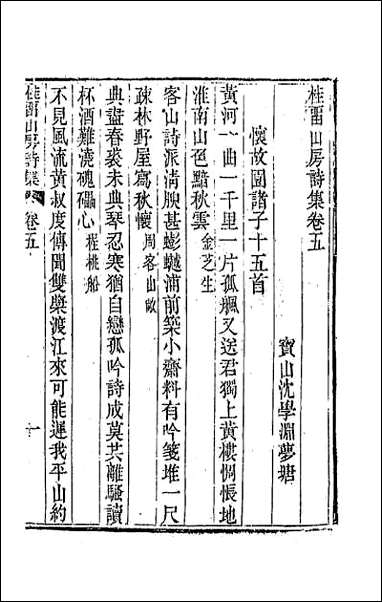 桂畱山房詩集卷五
寶山沈學淵夢塘
懷故園諸子十五首
黃河一曲一千里一片孤颿又送君獨上黃樓惆悵地
淮南山色黯秋雲金芝生
客山詩派淸腴甚蟛蚎浦前築小齋料有吟箋堆一尺
疎林野屋寫秋懷周客山畝
典盡春裘未典琴忍寒猶自戀孤吟詩成莫共離騷讀
杯酒難澆磈礧心程桃船
不見風流黃叔度傳聞雙槳渡江來可能遲我平山約
桂畱山房詩集
卷五
一